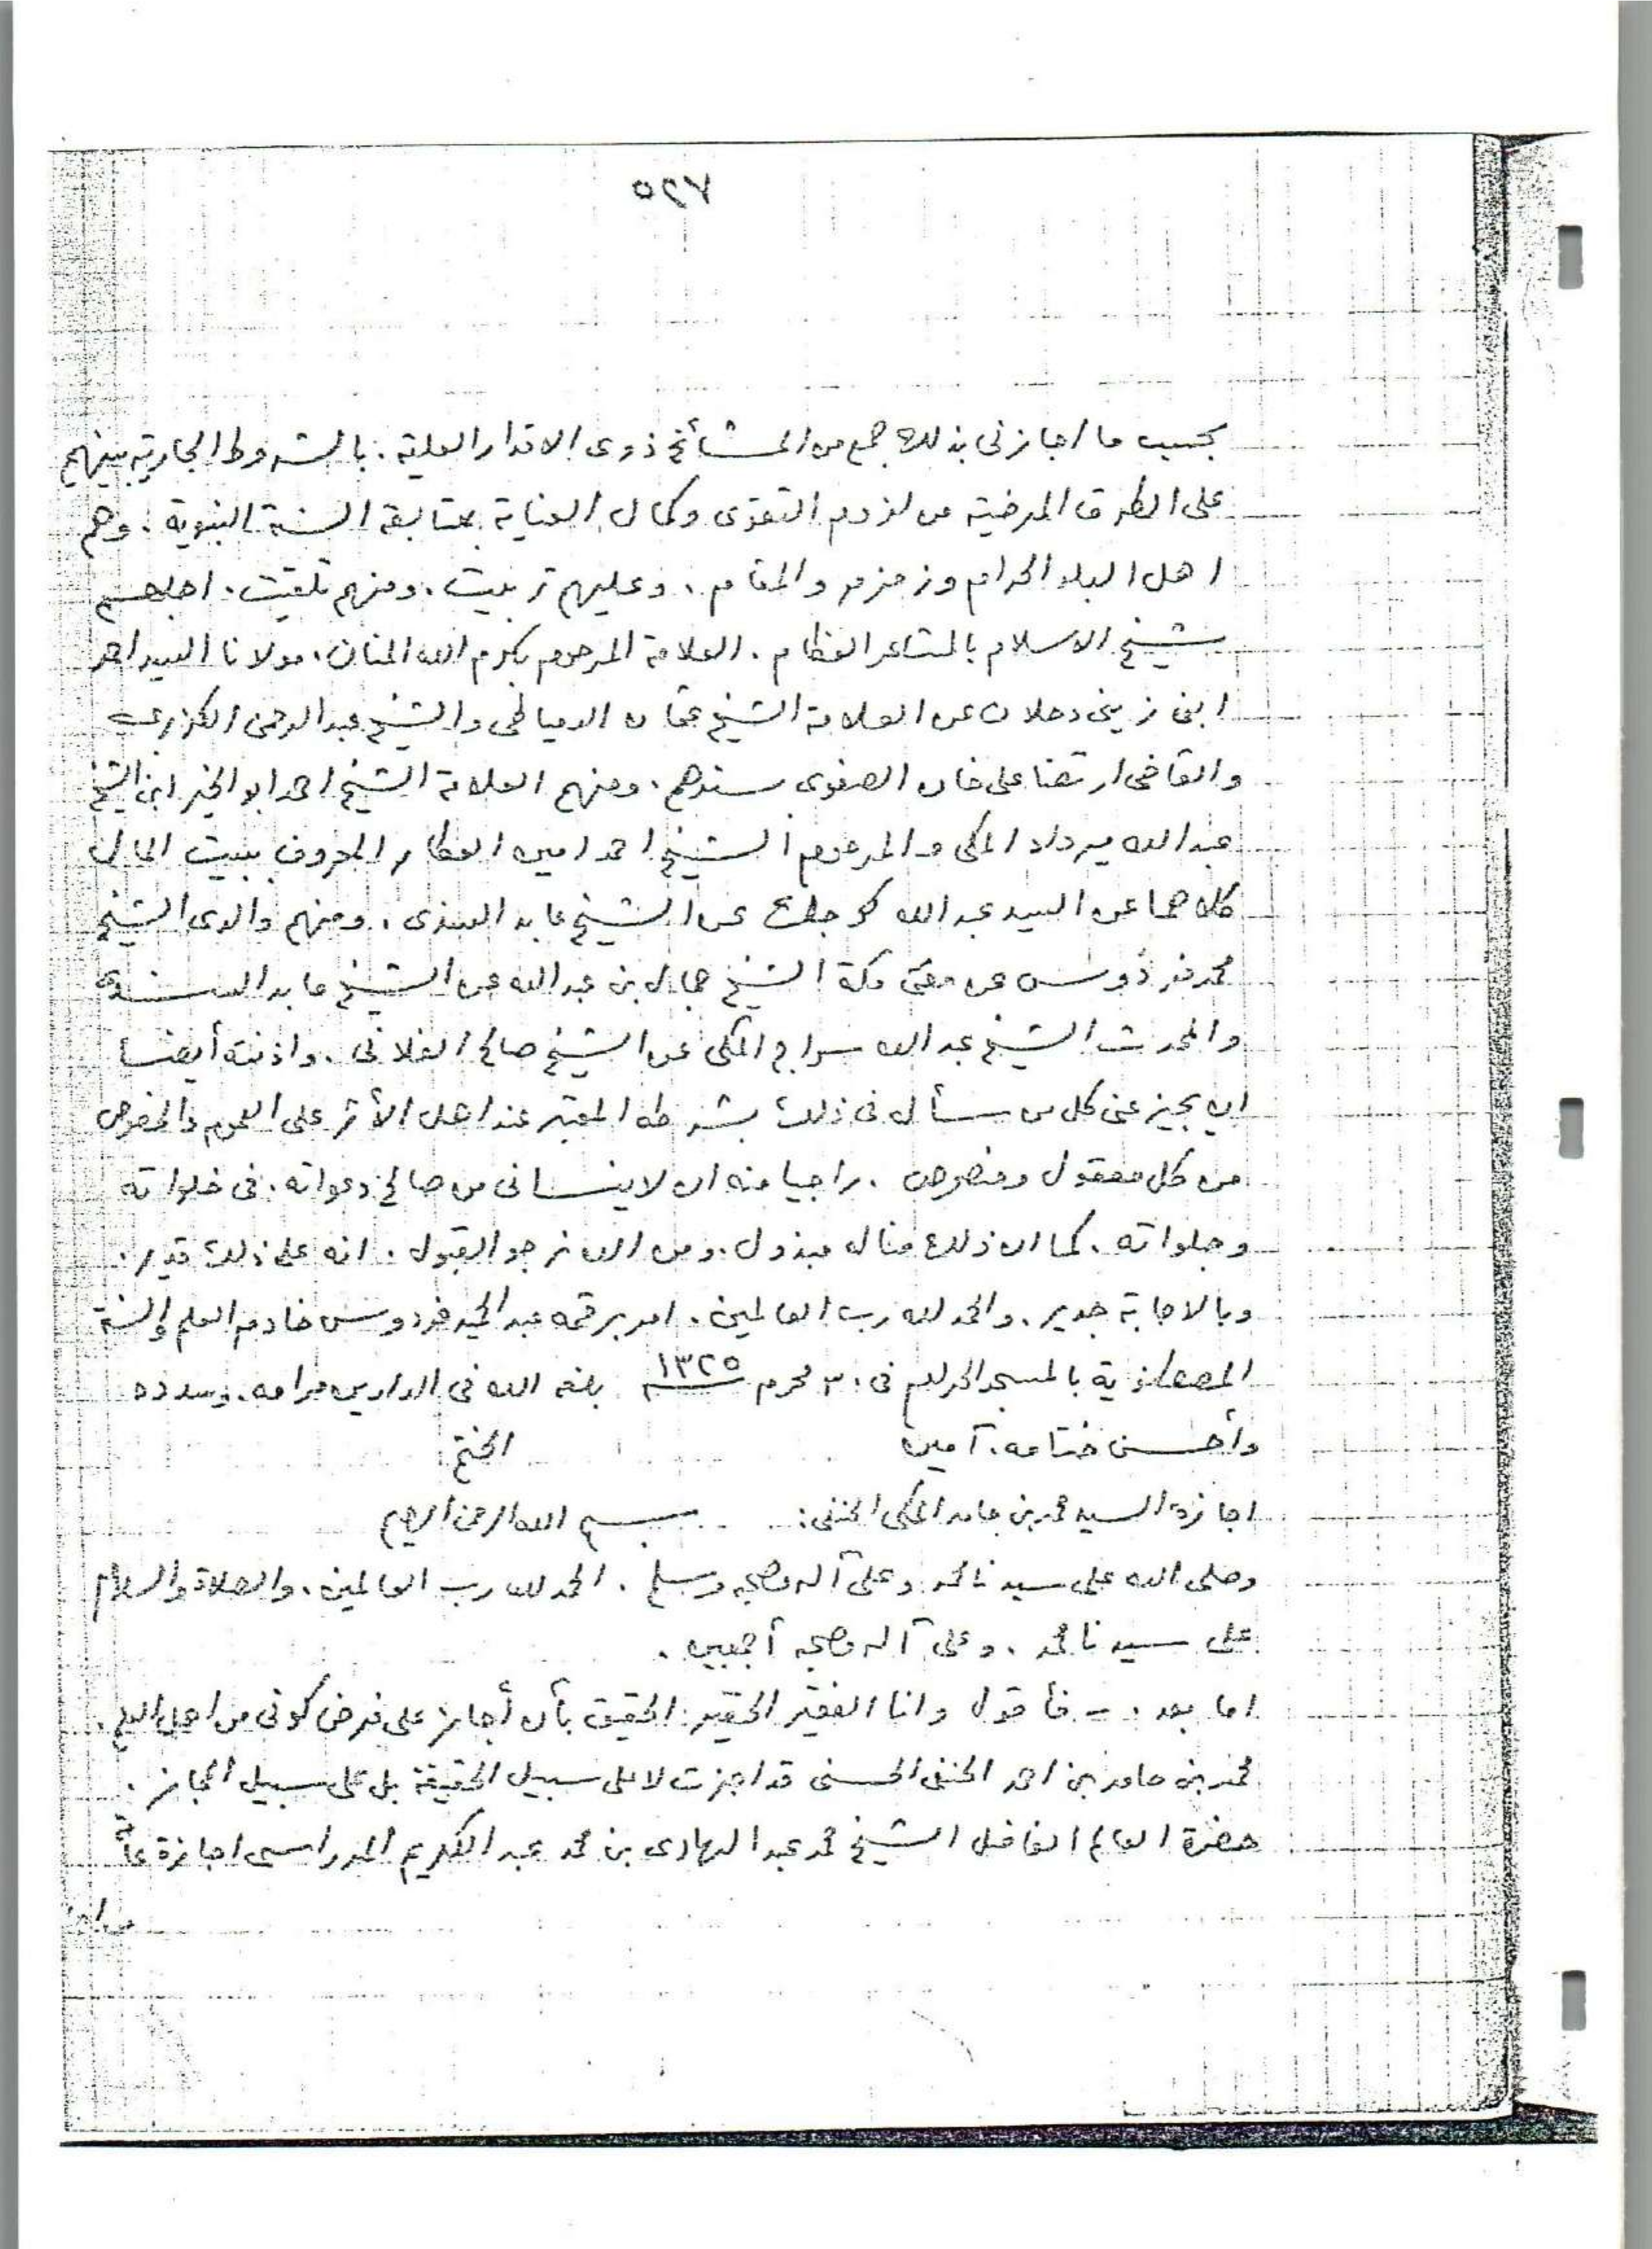 ٥٢٧
بحسب ما اجازنى بذلك جمع من المشائخ ذوى الاقدار العلية . بالشروط الجارية بينهم
على الطرق المرضية من لزوم التقوى وكمال العناية بمتابعة السنة النبوية . وهم
اهل البلد الحرام وزمزم والمقام . وعليهم تربيت . ومنهم تلقيت . اجلهم
شيخ الاسلام بالمشاعر العظام . العلامة المرحوم بكرم الله المنان . مولانا السيد احمد
ابن زينى دحلان عن العلامة الشيخ عثمان الدمياطى والشيخ عبد الرحمن الكزبرى
والقاضى ارتضا على خان الصفوى بسندهم . ومنهم العلامة الشيخ احمد ابو الخير ابن الشيخ
عبد الله ميرداد المكى والمرحوم الشيخ احمد امين العطار المعروف ببيت المال
كلاهما عن السيد عبد الله كوجك عن الشيخ عابد السندى . ومنهم والدى الشيخ
محمد فردوس عن مفتى مكة الشيخ جمال بن عبد الله عن الشيخ عابد السندى
والمحدث الشيخ عبد الله سراج المكى عن الشيخ صالح الفلانى . واذنته أيضا
ان يجيز عنى كل من سأل فى ذلك بشرطه المعتبر عند اهل الأثر على العموم والخصوص
من كل معقول ومنصوص . راجيا منه ان لا ينسانى من صالح دعواته . فى خلواته
وجلواته . كما ان ذلك مناله مبذول . ومن الله نرجو القبول . انه على ذلك قدير .
وبالاجابة جدير . والحمد لله رب العالمين . امر برقمه عبد الحميد فردوس خادم العلم والسنة
بالمسجد الحرام فى ٣٠ محرم ١٣٢٥ بلغه الله فى الدارين مرامه . وسدده
وأحسن ختامه . آمين الختم
اجازة السيد محمد بن حامد المكى الحنفى : بسم الله الرحمن الرحيم
وصلى الله على سيدنا محمد وعلى آله وصحبه وسلم . الحمد لله رب العالمين . والصلاة والسلام
على سيدنا محمد . وعلى آله وصحبه أجمعين .
اما بعد . - فأقول وانا الفقير الحقير الحقيق بأن أجاز على فرض كونى من اهل العلم .
محمد بن حامد بن احمد الحنفى الحسنى قد اجزت لا على سبيل الحقيقة بل على سبيل المجاز .
حضرة العالم الفاضل الشيخ محمد عبد الهادى بن محمد عبد الكريم المدراسى اجازة عامة